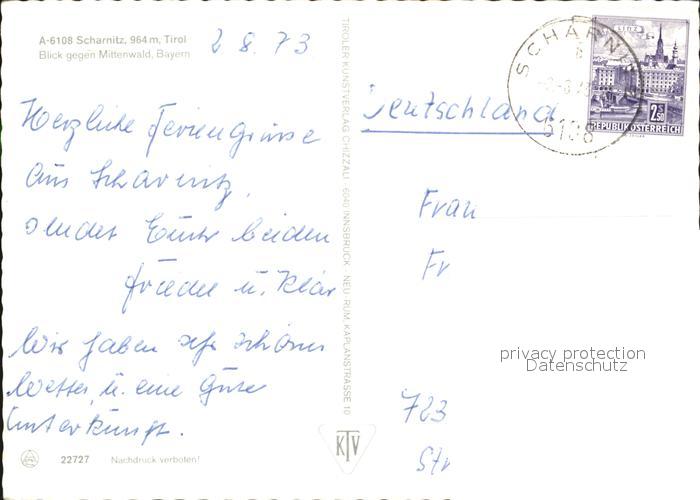 A-6108 Scharnitz, 964 m, Tirol
Blick gegen Mittenwald, Bayern
2 8. 73
Herzliche Feriengrüsse
aus Scharnitz,
sendet Euch beiden
Friedel u. Klär
Wir haben sehr schönes
Wetter, u. eine gute
Unterkunft.
22727 Nachdruck verboten!
TIROLER KUNSTVERLAG CHIZZALI 6040 INNSBRUCK NEU RUM, KAPLANSTRASSE 10
KTV
SCHARN
6108
LINZ
2.50
REPUBLIK ÖSTERREICH
Deutschland
Frau
Fr
privacy protection
Datenschutz
723
Str